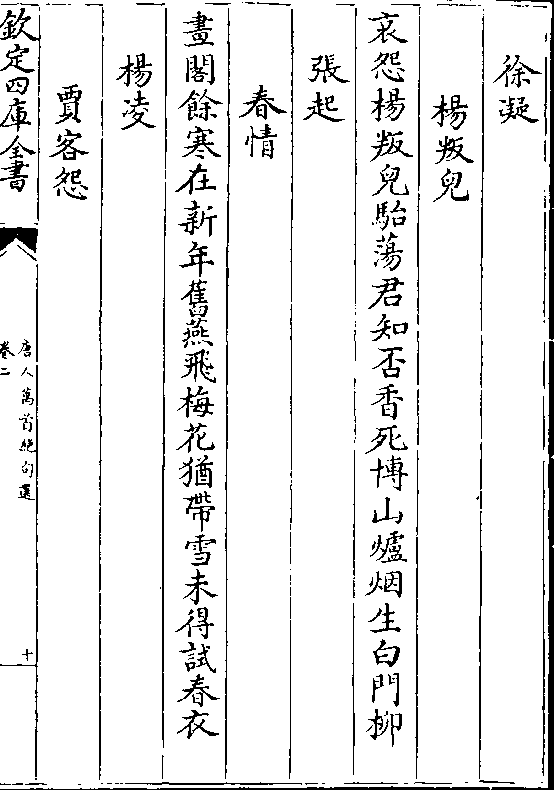 徐凝
楊叛兒
哀怨楊叛兒駘蕩君知否香死博山爐烟生白門柳
張起
春情
畫閣餘寒在新年舊燕飛梅花猶帶雪未得試春衣
楊凌
賈客怨
欽定四庫全書
唐人萬首絶句選
卷二
十